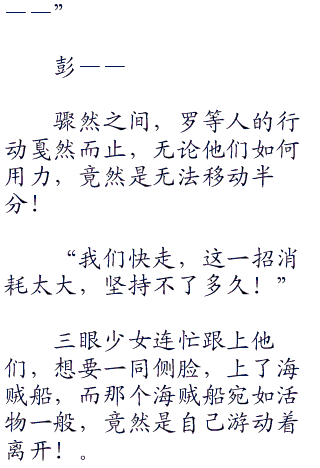 ——”
彭——
骤然之间，罗等人的行
动戛然而止，无论他们如何
用力，竟然是无法移动半
分！
“我们快走，这一招消
耗太大，坚持不了多久！”
三眼少女连忙跟上他
们，想要一同侧脸，上了海
贼船，而那个海贼船宛如活
物一般，竟然是自己游动着
离开！。